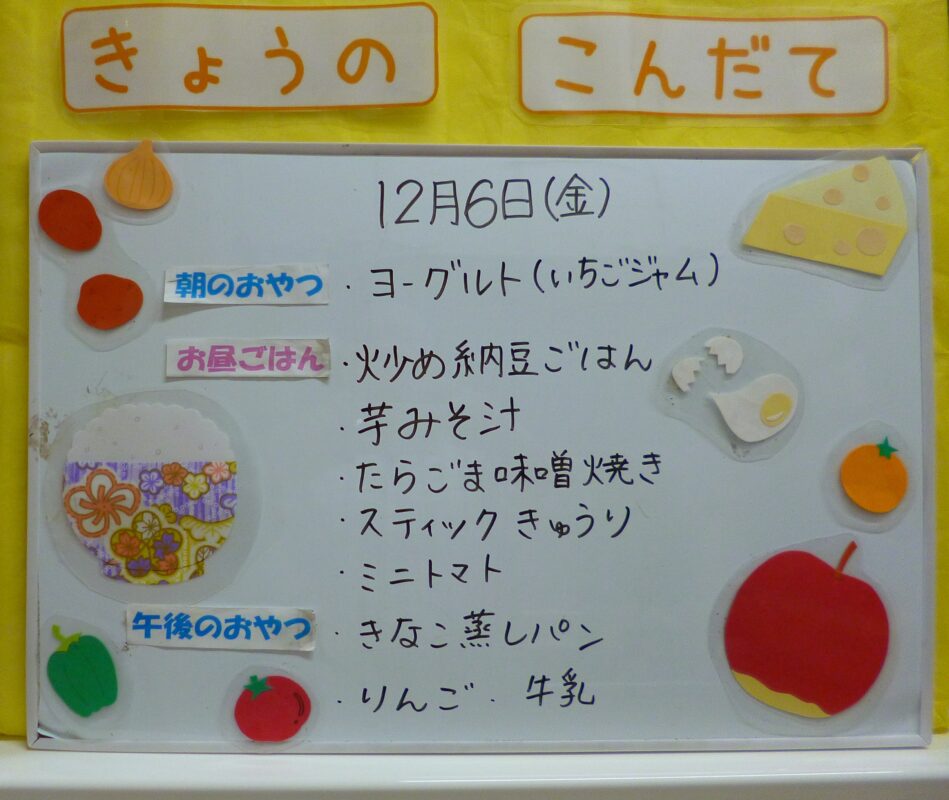 きょうの こんだて
12月6日(金)
朝のおやつ ・ヨーグルト(いちごジャム)
お昼ごはん ・炒め納豆ごはん
・芋みそ汁
・たらごま味噌焼き
・スティックきゅうり
・ミニトマト
午後のおやつ ・きなこ蒸しパン
・りんご・牛乳